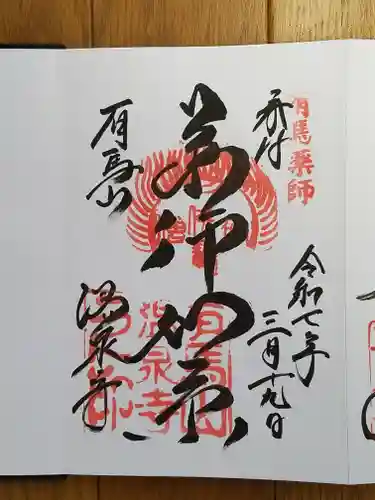 奉拝
有馬薬師
令和七年
三月十九日
薬師如来
有馬山
温泉寺
有馬山
温泉寺